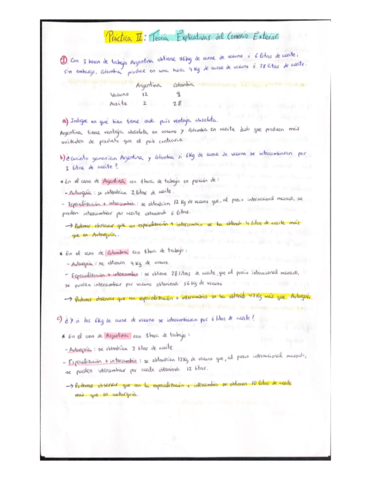 Práctica II: Teorías Explicativas del Comercio Exterior
① Con 3 horas de trabajo Argentina obtiene 36 kg de carne de vacuno ó 6 litros de aceite;
Sin embargo, Colombia produce en una hora 9 kg de carne de vacuno ó 28 litros de aceite.
Argentina Colombia
Vacuno 12 9
Aceite 2 28
a) Indique en qué bien tiene cada país ventaja absoluta.
Argentina tiene ventaja absoluta en vacuno y Colombia en aceite dado que producen más
unidades de producto que el país contrario.
b) ¿Cuánto ganarían Argentina y Colombia si 6 kg de carne de vacuno se intercambiasen por
3 litros de aceite?
• En el caso de Argentina con 1 hora de trabajo
- Autarquía: se obtendrían 2 litros de aceite.
- Especialización + intercambio: se obtendrían 12 kg de vacuno que, al precio internacional marcado, se
pueden intercambiar por aceite obteniendo 6 litros
→ Podemos observar que en especialización + intercambio se ha obtenido 4 litros de aceite más
que en Autarquía.
• En el caso de Colombia con 1 hora de trabajo:
- Autarquía: se obtienen 9 kg de vacuno
- Especialización + intercambio: se obtiene 28 litros de aceite que, al precio internacional marcado,
se pueden intercambiar por vacuno obteniendo 56 kg de vacuno
→ Podemos observar que en especialización + intercambio se ha obtenido 47 kg más que Autarquía
c) ¿Y si los 6 kg de carne de vacuno se intercambiasen por 6 litros de aceite?
• En el caso de Argentina con 1 hora de trabajo:
- Autarquía: se obtendrían 2 litros de aceite
- Especialización + intercambio: se obtendrían 12 kg de vacuno que, al precio internacional marcado,
se pueden intercambiar por aceite obteniendo 12 litros.
→ Podemos observar que en la especialización + intercambio se obtienen 10 litros de aceite
más que en autarquía